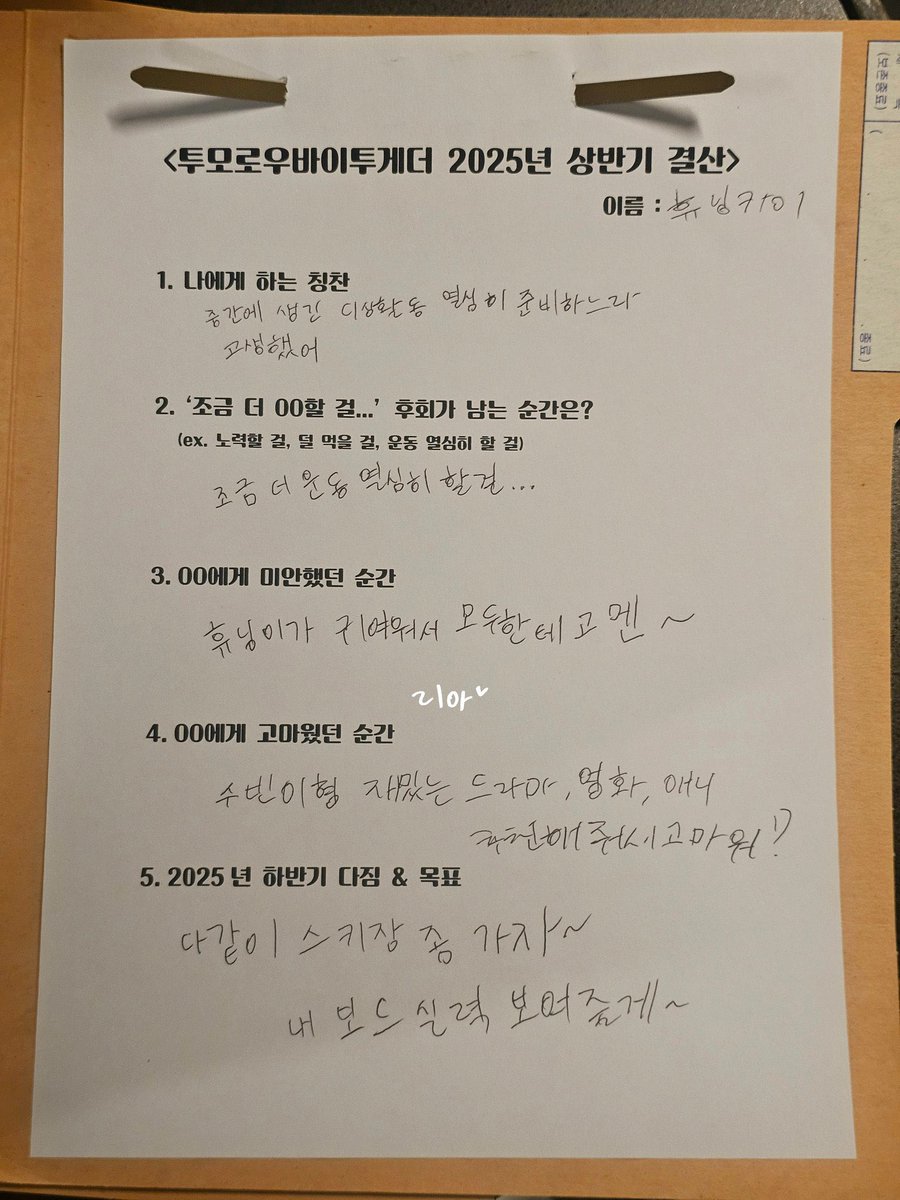 <투모로우바이투게더 2025년 상반기 결산>
이름 : 휴닝카이
1. 나에게 하는 칭찬
중간에 생긴 디상활동 열심히 준비하느라
고생했어
2. ‘조금 더 00할 걸...’ 후회가 남는 순간은?
(ex. 노력할 걸, 덜 먹을 걸, 운동 열심히 할 걸)
조금 더 운동 열심히 할걸...
3. 00에게 미안했던 순간
휴닝이가 귀여워서 모두한테 고멘~
리아
4. 00에게 고마웠던 순간
수빈이형 재밌는 드라마, 영화, 애니
추천해줘서 고마워!)
5. 2025년 하반기 다짐 & 목표
다같이 스키장 좀 가자~
내 보드실력 보여줄게~
(보존종료)
종료)